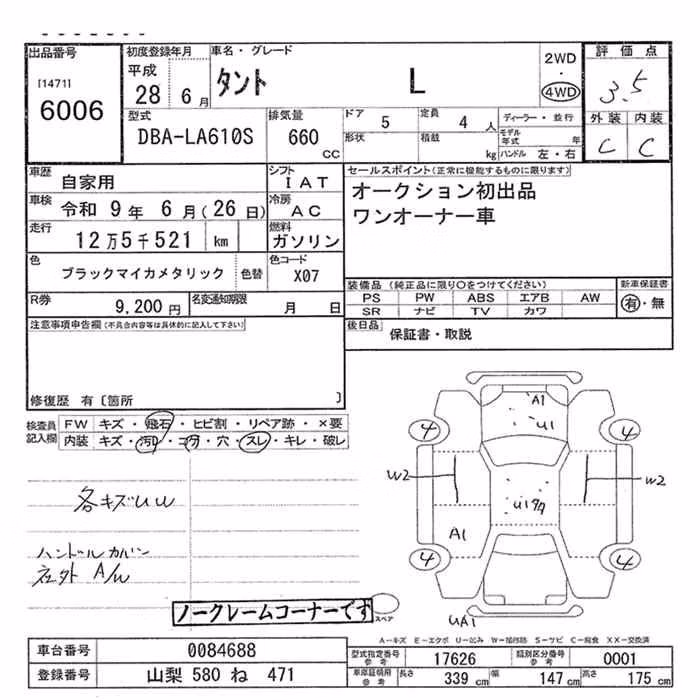 出品番号
[1471]
6006
初度登録年月
平成
28 6月
車名・グレード
タント L
2WD
・
4WD
評価点
3.5
外装 内装
C C
型式
DBA-LA610S
排気量
660
CC
ドア 5
定員 4 人
形状
積載 kg
ディーラー・並行
モデル年式 年
ハンドル 左・右
車歴
自家用
シフト
IAT
車検 令和 9年 6月(26日)
冷房
AC
走行 12万5千521 km
燃料
ガソリン
色
ブラックマイカメタリック
色替
色コード
X07
R券 9,200円
名変通知期限 月 日
セールスポイント(正常に機能するものに限ります)
オークション初出品
ワンオーナー車
装備品(純正品に限り○をつけてください)
PS PW ABS エアB AW
SR ナビ TV カワ
新車保証書
有・無
後日品 保証書・取説
注意事項申告欄(不具合内容等は具体的に記入して下さい)
修復歴 有〔箇所 〕
検査員記入欄
FW キズ・飛石・ヒビ割・リペア跡・×要
内装 キズ・汚レ・コゲ・穴・スレ・キレ・破レ
各キズUW
ハンドルカバー
社外 A/W
ノークレームコーナーです
A1
U1
4
4
W2
W2
A1
4
4
UA1
スペア
A-キズ E-エクボ U-凹み W-補修跡 S-サビ C-腐食 XX-交換済
車台番号 0084688
登録番号 山梨 580 ね 471
型式指定番号
参考
17626
類別区分番号
参考
0001
車庫証明用
参考
長さ 339 cm 幅 147 cm 高さ 175 cm